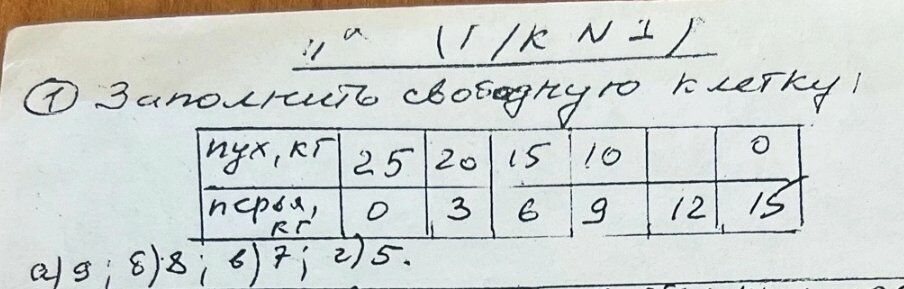 „ “ (Г/К N 1)
① Заполнить свободную клетку!
пух, кг 25 20 15 10 0
перья, кг 0 3 6 9 12 15
а) 9; б) 8; в) 7; г) 5.